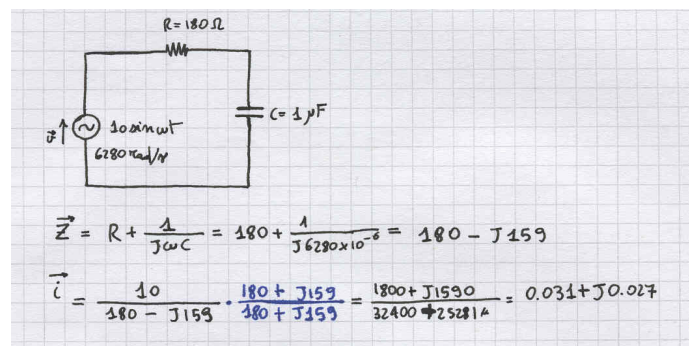 R=180Ω
C= 1 µF
v⃗
10 sin ωt
6280 rad/s
Z⃗ = R + 1/JωC = 180 + 1/J6280x10⁻⁶ = 180 - J159
i⃗ = 10/180 - J159 · 180 + J159/180 + J159 = 1800 + J1590/32400 + 25281 = 0.031 + J0.027